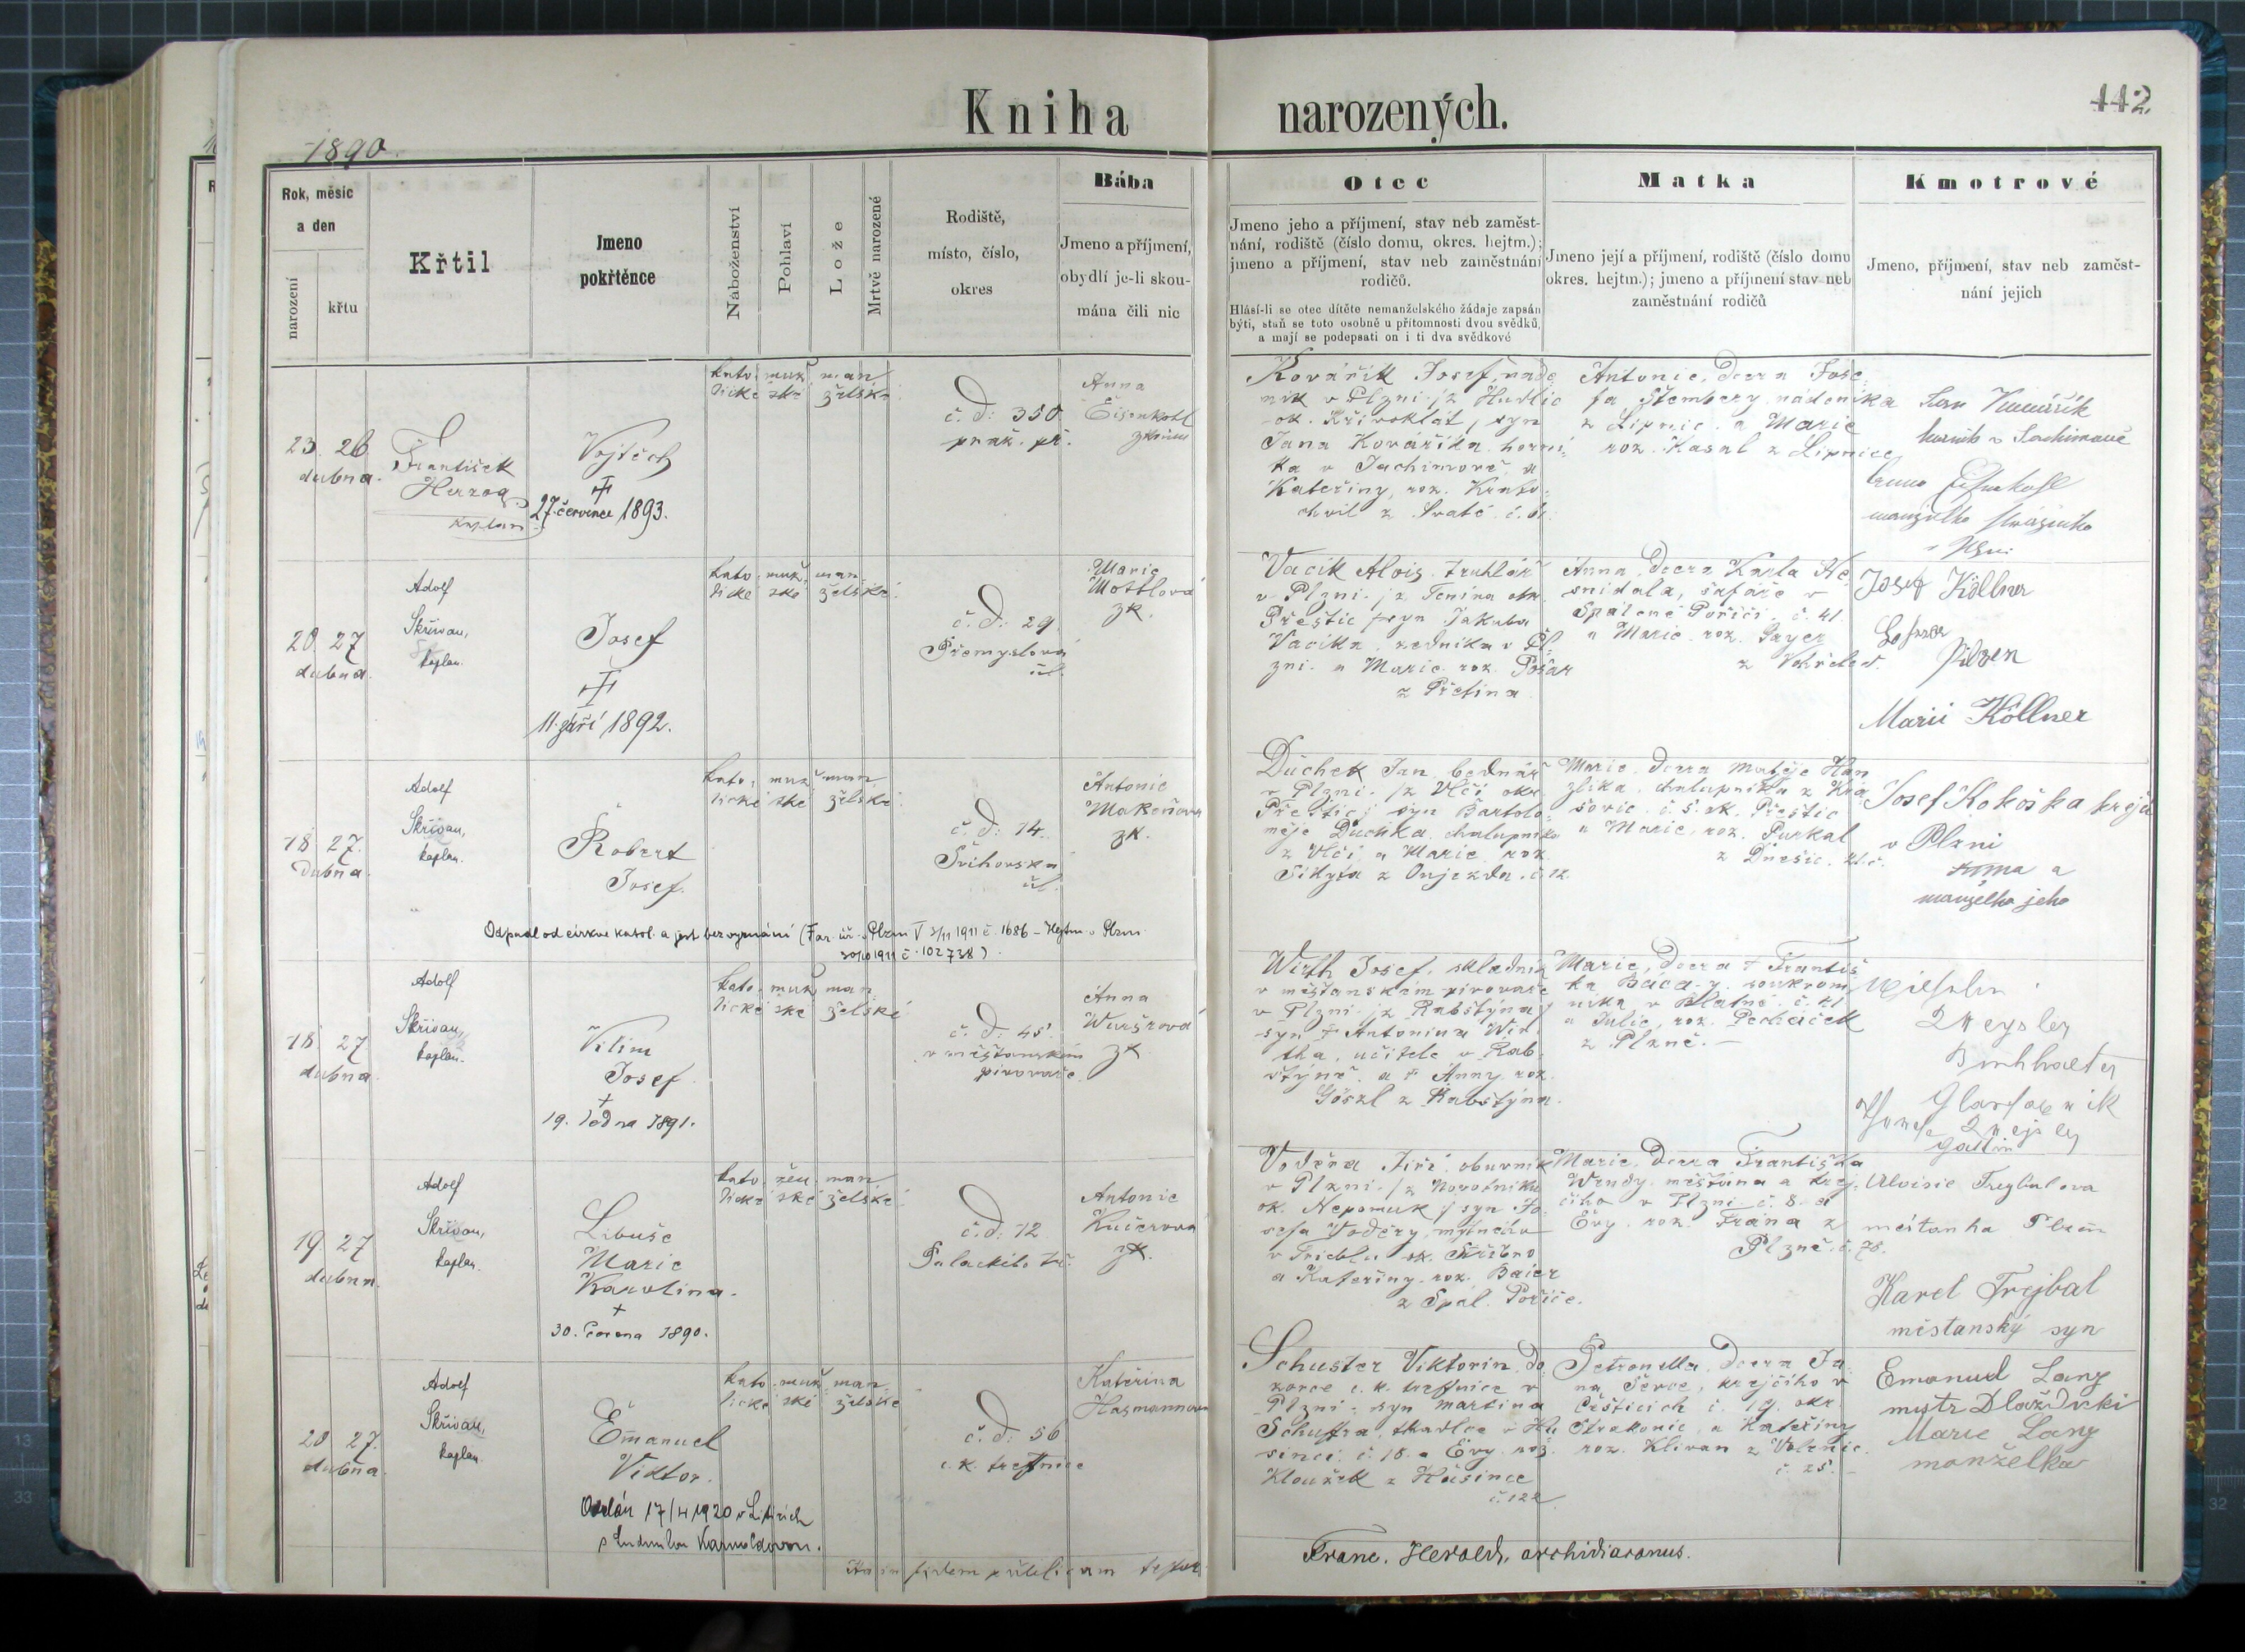 Kniha narozených.
442
1890.
Rok, měsíc
a den
narození
křtu
Křtil
Jmeno
pokřtěnce
Náboženství
Pohlaví
Lože
Mrtvě narozené
Rodiště,
místo, číslo,
okres
Bába
Jmeno a příjmení,
obydlí je-li skou-
mána čili nic
Otec
Jmeno jeho a příjmení, stav neb zaměst-
nání, rodiště (číslo domu, okres. hejtm.);
jmeno a příjmení, stav neb zaměstnání
rodičů.
Hlásí-li se otec dítěte nemanželského žádaje zapsán
býti, staň se toto osobně u přítomnosti dvou svědků,
a mají se podepsati on i ti dva svědkové
Matka
Jmeno její a příjmení, rodiště (číslo domu
okres. hejtm.); jmeno a příjmení stav neb
zaměstnání rodičů
Kmotrové
Jmeno, příjmení, stav neb zaměst-
nání jejich
23. 26
dubna.
František
Herzog
kaplan
Vojtěch
27. července 1893.
kato- muž man
lické ské želské
č. d: 350.
praž. př.
Anna
Eisenkohl
Kovářík Josef, nade
nik v Plzni /z Hudlic
ok. Křivoklát, syn
Jana Kováříka horní
ka v Jachimově, a
Kateřiny, roz. Krato-
chvil z Svaté č. 61.
Antonie, dcera Jose
fa Štembery nádeníka
z Lipnic. a Marie
roz. Kasal z Lipnice
20. 27
dubna.
Adolf
Skřivan,
kaplan.
Josef
11. září 1892.
kato- muž man
lické ské želské.
č. d: 29.
Přemyslova
ul.
Marie
Mottlová
zk.
Vacik Alois, truhlář
v Plzni /z Tenina okr.
Přeštic syn Jakuba
Vacíka, zedníka v Pl-
zni a Marie roz. Pošar
z Přetina
Anna, dcera Karla Ne
snídala, šafáře v
Spálené Poříčí č. 41.
a Marie roz. Bayer
Josef Köllner
Pilzen
Marii Köllner
18 27.
dubna.
Adolf
Skřivan,
kaplan.
Robert
Josef.
kato- muž man
lické ské želské.
č. d: 14.
Švihovská
ul.
Antonie
Makeňova
zk.
Duchek Jan, bednář
v Plzni /z Vlčí okr.
Přeštic/ syn Bartolo-
měje Duchka chalupníka
z Vlčí a Marie roz.
Sikyta z Oujezda č. 12
Marie, dcera Matěje Han
zlíka, chalupníka z Kra
šovic č. 5. ok. Přeštic
a Marie, roz. Purkat
z Dnešic. 21. č.
Josef Kokoška krejčí
v Plzni
Anna a
manželka jeho
Odpadl od církve katol. a jest bez vyznání (Far. úř. v Plzni V 3/11 1911 č. 1686 – Hejtm. v Plzni
30/10 1911 č. 102738)
18. 27
dubna.
Adolf
Skřivan,
kaplan.
Vilím
Josef.
19. ledna 1891.
kato- muž man
lické ské želské
č. d: 45
v měšťanském
pivovaře.
Anna
Wuršrová
zk.
Wirth Josef, skladník
v měšťanském pivovaře
v Plzni /z Rabštýna/
syn † Antonína Wir
tha, učitele v Rab-
štýně a † Anny roz.
Göszl z Rabštýna.
Marie, dcera † Františ
ka Báča
nika v Blatné č. 41
a Julie, roz. Peckáček
z Plzně.
19. 27
dubna.
Adolf
Skřivan,
kaplan.
Libuše
Marie
Karolina.
30. června 1890.
kato- žen man
lické ské želské.
č. d: 12.
Palackého tř.
Antonie
Kučerova
zk.
Voděra Jiří, obuvník
v Plzni /z Novotníku
ok. Nepomuk/ syn Jo-
sefa Voděry mýtného
v Trieblu ok. Stříbro
a Kateřiny roz. Baier
z Spál. Poříče.
Marie, dcera Františka
Wendy měšťana a krej-
čího v Plzni č. 8. a
Evy roz. Frána z
Plzně č. 78.
Aloisie Trejbalova
měšťanka Plzeň
Karel Trejbal
měšťanský syn
20 27.
dubna.
Adolf
Skřivan,
kaplan
Emanuel
Viktor.
kato- muž man
lické ské želské
č. d: 56
c. k. trestnice
Kateřina
Hasmannova
Schuster Viktorin, do
zorce c. k. trestnice v
Plzni, syn Martina
Schustra, tkadlce v Hu
sinci č. 18. a Evy roz.
Kloužek z Husince
č. 122
Petronilla, dcera Ja
na Ševce, krejčího v
Češticích č. 19. okr.
Strakonic, a Kateřiny
roz. Klivan z Volenic.
č. 25.
Emanuel Lang
mistr Dlaždicki
Marie Lang
manželka
Oddán 17/4 1920 v Liticích
s Ludmilou Karnoldovou.
fidem publicam testor
Franc. Herold, archidiaconus.